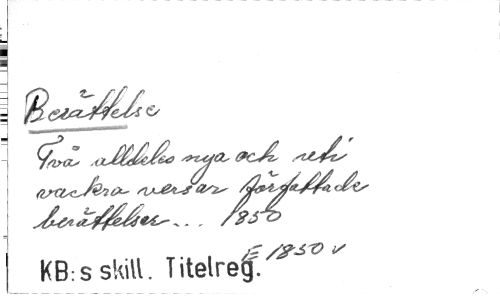 Berättelse
Två alldeles nya och uti
vackra versar författade
berättelser... 1850
E 1850 v
KB:s skill. Titelreg.